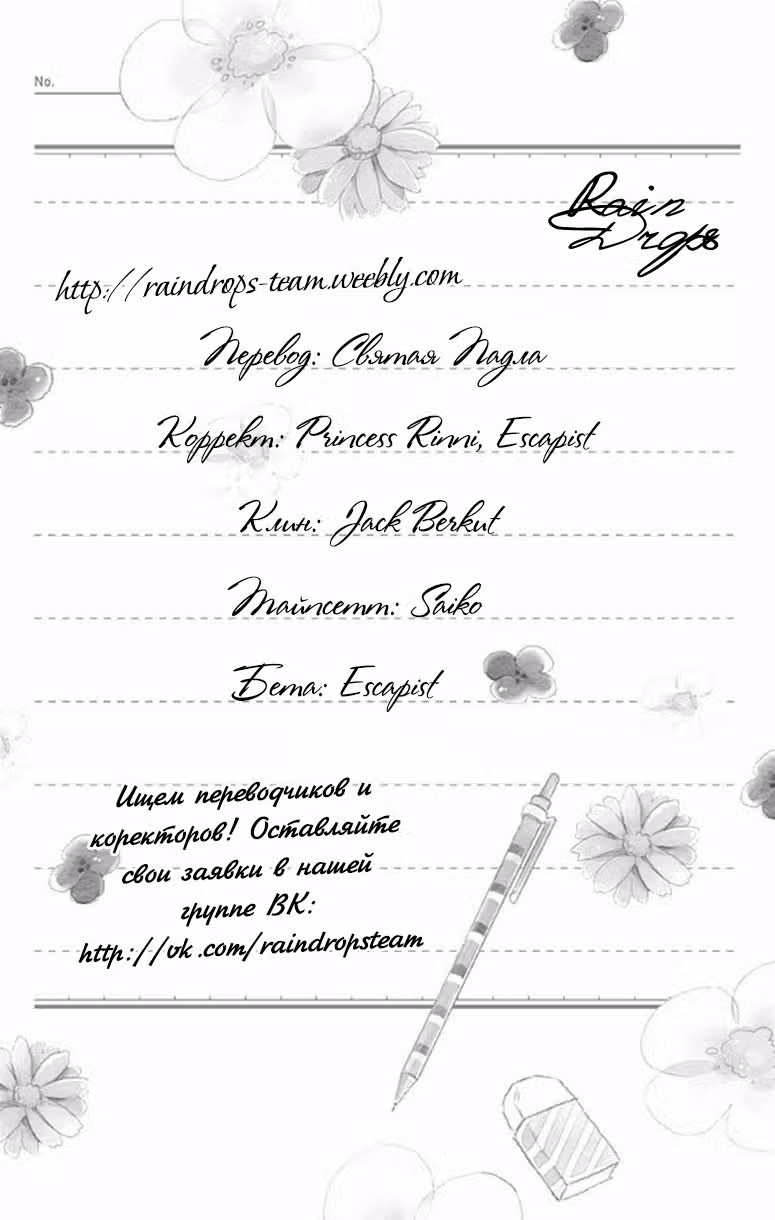 No.
Rain
Drops
http://raindrops-team.weebly.com
Перевод: Святая Падла
Коррект: Princess Rinni, Escapist
Клин: Jack Berkut
Тайпсетт: Saiko
Бета: Escapist
Ищем переводчиков и
коректоров! Оставляйте
свои заявки в нашей
группе ВК:
http://vk.com/raindropsteam